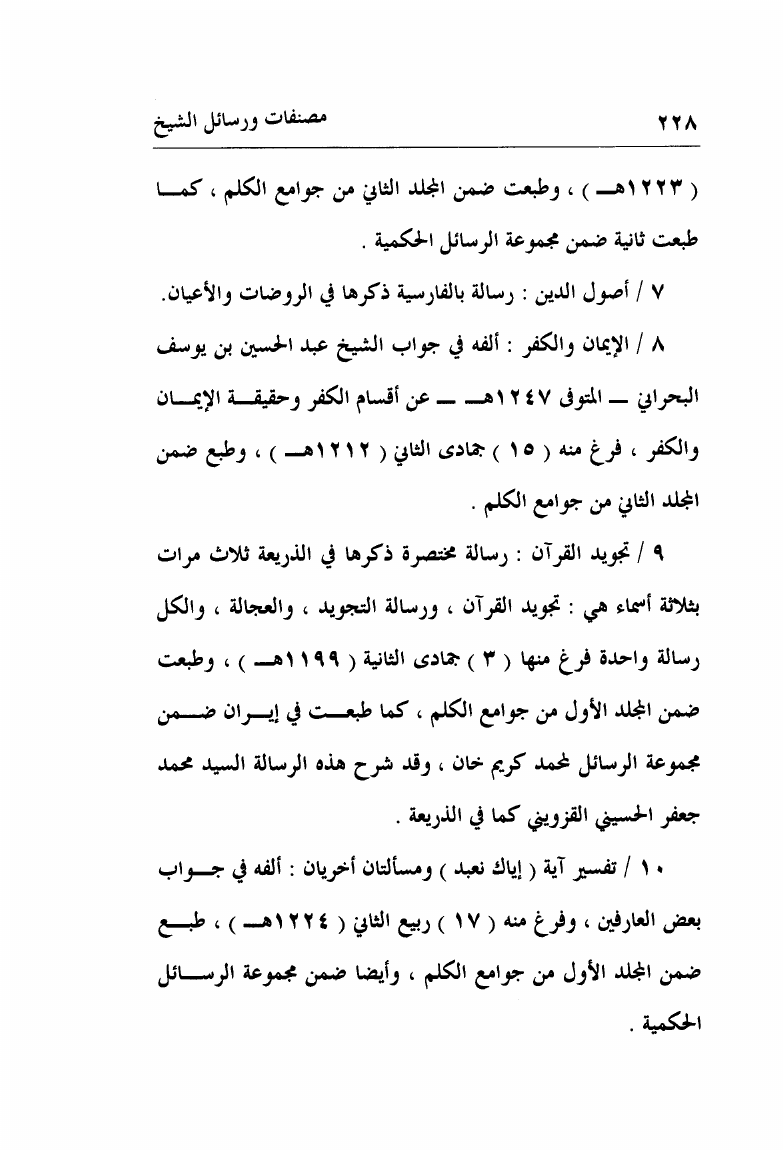 ٢٢٨ مصنفات ورسائل الشيخ
( ١٢٢٣هـ ) ، وطبعت ضمن المجلد الثاني من جوامع الكلم ، كما
طبعت ثانية ضمن مجموعة الرسائل الحكمية .
٧ / أصول الدين : رسالة بالفارسية ذكرها في الروضات والأعيان.
٨ / الإيمان والكفر : ألفه في جواب الشيخ عبد الحسين بن يوسف
البحراني – المتوفى ١٢٤٧هـ – عن أقسام الكفر وحقيقة الإيمان
والكفر ، فرغ منه ( ١٥ ) جمادى الثاني ( ١٢١٢هـ ) ، وطبع ضمن
المجلد الثاني من جوامع الكلم .
٩ / تجويد القرآن : رسالة مختصرة ذكرها في الذريعة ثلاث مرات
بثلاثة أسماء هي : تجويد القرآن ، ورسالة التجويد ، والعجالة ، والكل
رسالة واحدة فرغ منها ( ٣ ) جمادى الثانية ( ١١٩٩هـ ) ، وطبعت
ضمن المجلد الأول من جوامع الكلم ، كما طبعت في إيران ضمن
مجموعة الرسائل لمحمد كريم خان ، وقد شرح هذه الرسالة السيد محمد
جعفر الحسيني القزويني كما في الذريعة .
١٠ / تفسير آية ( إياك نعبد ) ومسألتان أخريان : ألفه في جواب
بعض العارفين ، وفرغ منه ( ١٧ ) ربيع الثاني ( ١٢٢٤هـ ) ، طبع
ضمن المجلد الأول من جوامع الكلم ، وأيضا ضمن مجموعة الرسائل
الحكمية .